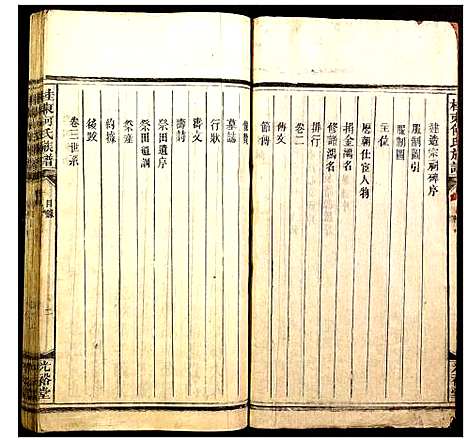 桂東何氏族譜
建造宗祠碑序
服制圖引
服制圖
上位
歷朝仕宦人物
捐金鴻名
修譜鴻名
排行
卷二
傳文
節傳
像贊
墓誌
行狀
壽文
壽詩
祭田遺序
祭田遺調
祭產
約據
後跋
卷三世系
桂東何氏族譜
目錄
二
光裕堂